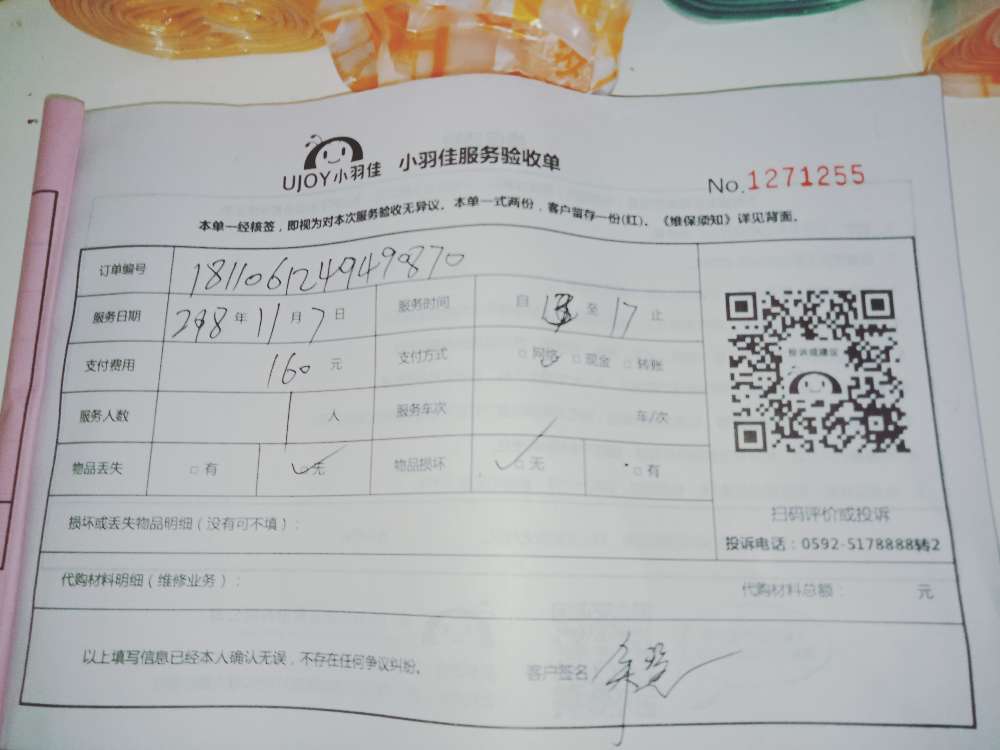 UJOY小羽佳 小羽佳服务验收单
No.1271255
本单一经核签，即视为对本次服务验收无异议。本单一式两份，客户留存一份(红)。《维保须知》详见背面。
订单编号 181106124949870
服务日期 2018年11月7日 服务时间 自 至17止
支付费用 160元 支付方式 □网络 □现金 □转账
服务人数 1人 服务车次 车/次
物品丢失 □有 □无 物品损坏 □无 □有
投诉或建议
损坏或丢失物品明细（没有可不填）：
扫码评价或投诉
投诉电话：0592-5178888转2
代购材料明细（维修业务）： 代购材料总额： 元
以上填写信息已经本人确认无误，不存在任何争议纠纷。 客户签名